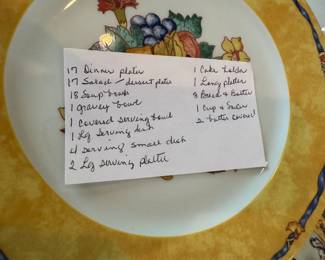 17 Dinner plates
17 Salad - dessert plates
18 Soup bowls
1 gravey bowl
1 Covered serving bowl
1 Lg Serving dish
4 serving small dish
2 Lg serving platter
1 Cake holder
1 Long platter
8 Bread & Butter
1 Cup &
2 butter covered